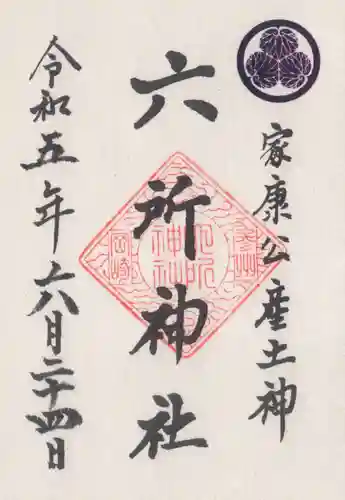 家康公産土神
六所神社
令和五年六月二十四日
岡崎
六所
神社